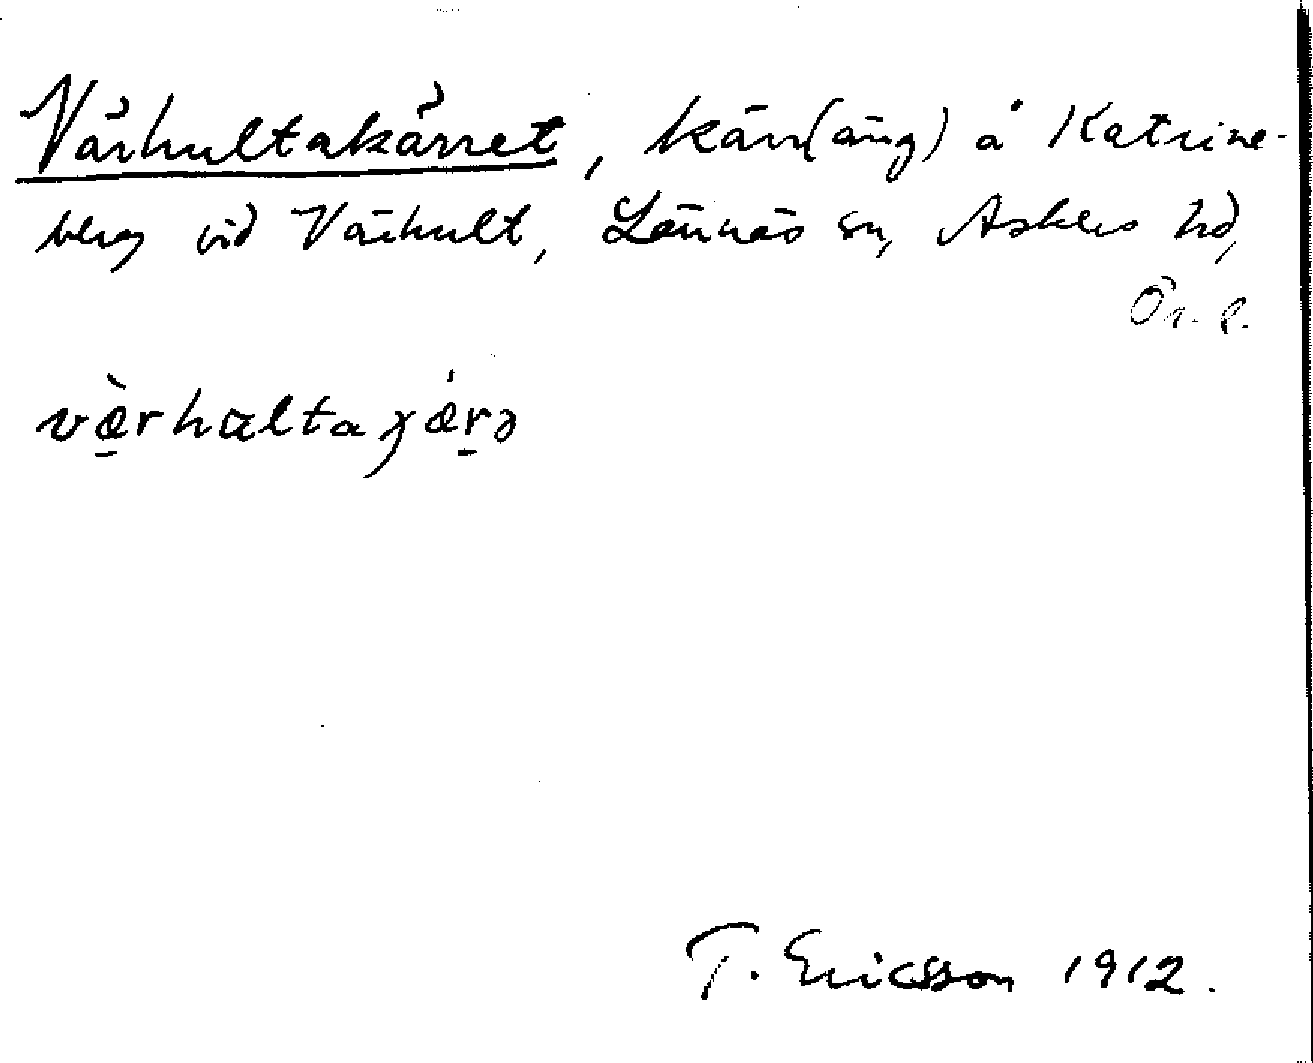 Värhultakärret, kärr(äng) å Katrine-
berg vid Värhult, Lännäs sn, Askers hd,
Ör. l.
væ̀rhultaɣǽrə
T. Ericsson 1912.